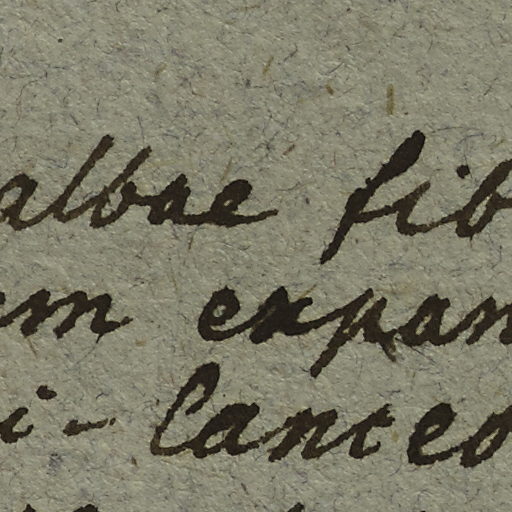 albae fib
em expan
i-lanceo